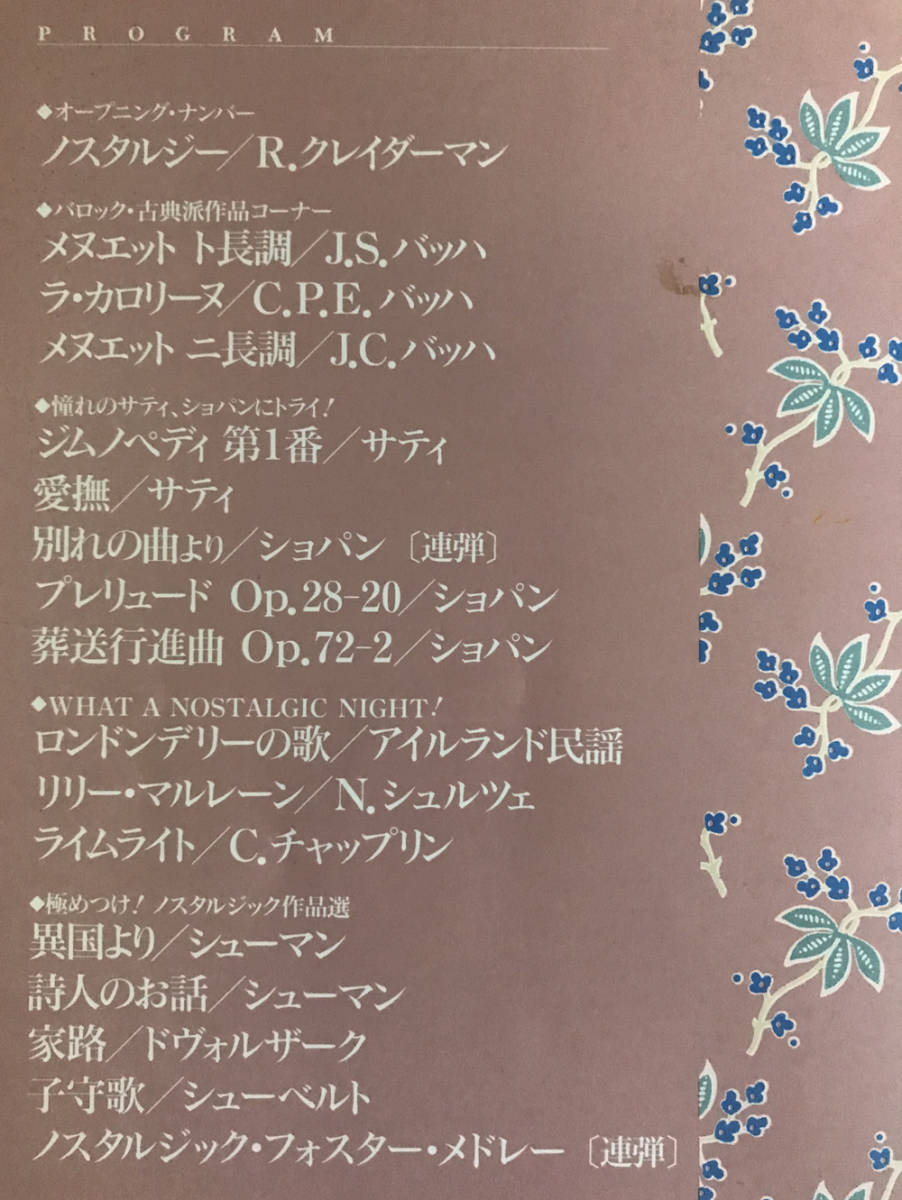 PROGRAM
◆オープニング・ナンバー
ノスタルジー/R.クレイダーマン
◆バロック・古典派作品コーナー
メヌエット ト長調/J.S.バッハ
ラ・カロリーヌ/C.P.E.バッハ
メヌエット ニ長調/J.C.バッハ
◆憧れのサティ、ショパンにトライ!
ジムノペディ 第1番/サティ
愛撫/サティ
別れの曲より/ショパン〔連弾〕
プレリュード Op.28-20/ショパン
葬送行進曲 Op.72-2/ショパン
◆WHAT A NOSTALGIC NIGHT!
ロンドンデリーの歌/アイルランド民謡
リリー・マルレーン/N.シュルツェ
ライムライト/C.チャップリン
◆極めつけ! ノスタルジック作品選
異国より/シューマン
詩人のお話/シューマン
家路/ドヴォルザーク
子守歌/シューベルト
ノスタルジック・フォスター・メドレー〔連弾〕